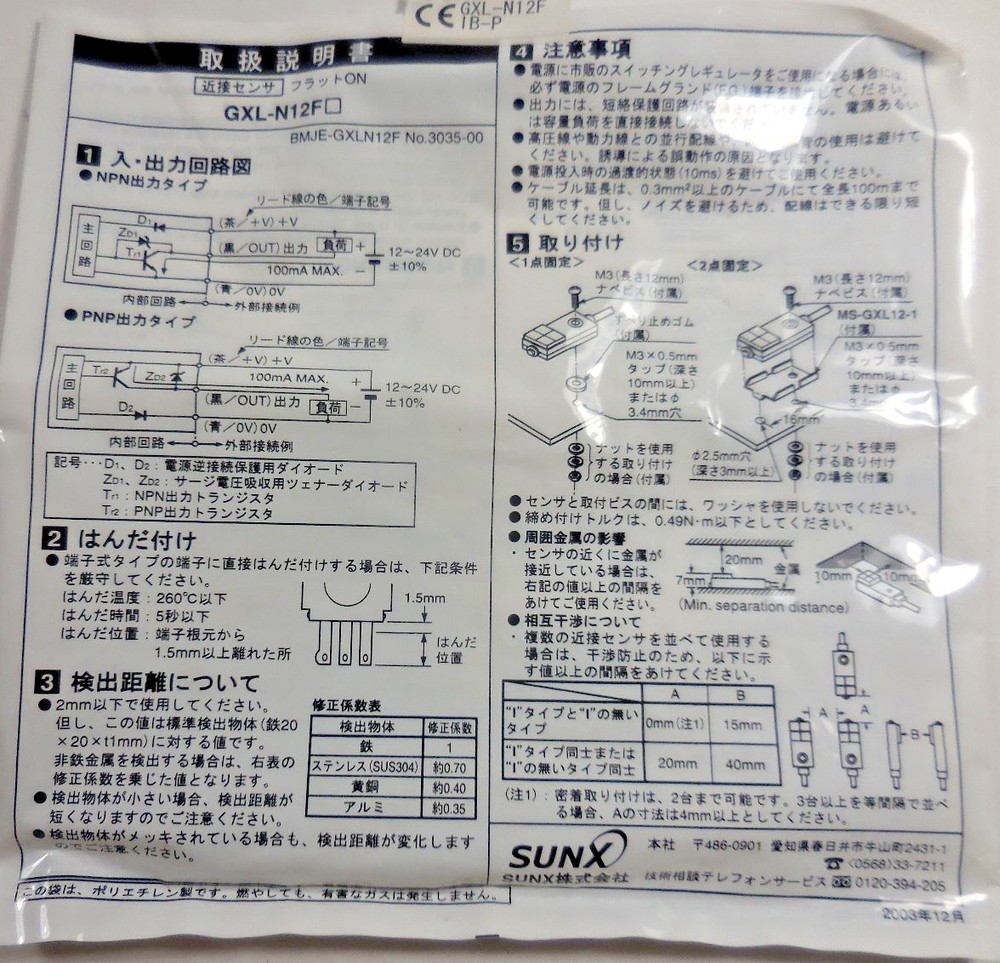 CE GXL-N12F
IB-P
取扱説明書
近接センサ フラットON
GXL-N12F□
BMJE-GXLN12F No.3035-00
1 入・出力回路図
●NPN出力タイプ
リード線の色／端子記号
主回路
D1
ZD1
Tr1
(茶／+V)+V
(黒／OUT)出力
負荷
+
100mA MAX.
−
12～24V DC
±10%
(青／0V)0V
内部回路 外部接続例
●PNP出力タイプ
リード線の色／端子記号
主回路
Tr2
ZD2
D2
(茶／+V)+V
100mA MAX.
+
(黒／OUT)出力
負荷
−
12～24V DC
±10%
(青／0V)0V
内部回路 外部接続例
記号･･･D1、D2：電源逆接続保護用ダイオード
ZD1、ZD2：サージ電圧吸収用ツェナーダイオード
Tr1：NPN出力トランジスタ
Tr2：PNP出力トランジスタ
2 はんだ付け
●端子式タイプの端子に直接はんだ付けする場合は、下記条件
を厳守してください。
はんだ温度：260℃以下
はんだ時間：5秒以下
はんだ位置：端子根元から
1.5mm以上離れた所
1.5mm
はんだ
位置
3 検出距離について
●2mm以下で使用してください。
但し、この値は標準検出物体(鉄20
×20×t1mm)に対する値です。
非鉄金属を検出する場合は、右表の
修正係数を乗じた値となります。
●検出物体が小さい場合、検出距離が
短くなりますのでご注意ください。
●検出物体がメッキされている場合も、検出距離が変化します
のでご注意ください。
修正係数表
検出物体 修正係数
鉄 1
ステンレス(SUS304) 約0.70
黄銅 約0.40
アルミ 約0.35
この袋は、ポリエチレン製です。燃やしても、有害なガスは発生しません。
4 注意事項
●電源に市販のスイッチングレギュレータをご使用になる場合には、
必ず電源のフレームグランド(F.G.)端子を接地してください。
●出力には、短絡保護回路が装備されていません。電源あるい
は容量負荷を直接接続しないでください。
●高圧線や動力線との並行配線や 管の使用は避けて
ください。誘導による誤動作の原因となります。
●電源投入時の過渡的状態(10ms)を避けてご使用ください。
●ケーブル延長は、0.3mm²以上のケーブルにて全長100mまで
可能です。但し、ノイズを避けるため、配線はできる限り短
くしてください。
5 取り付け
<1点固定>
M3(長さ12mm)
ナベビス(付属)
すべり止めゴム
(付属)
M3×0.5mm
タップ(深さ
10mm以上)
またはφ
3.4mm穴
ナットを使用
する取り付け
の場合(付属)
<2点固定>
M3(長さ12mm)
ナベビス(付属)
MS-GXL12-1
(付属)
M3×0.5mm
タップ(深さ
10mm以上)
またはφ
16mm
φ2.5mm穴
(深さ3mm以上)
ナットを使用
する取り付け
の場合(付属)
●センサと取付ビスの間には、ワッシャを使用しないでください。
●締め付けトルクは、0.49N･m以下としてください。
●周囲金属の影響
・センサの近くに金属が
接近している場合は、
右記の値以上の間隔を
あけてご使用ください。
20mm
金属
7mm
10mm
10mm
(Min. separation distance)
●相互干渉について
・複数の近接センサを並べて使用する
場合は、干渉防止のため、以下に示
す値以上の間隔をあけてください。
A B
“I”タイプと“I”の無い
タイプ
0mm(注1) 15mm
“I”タイプ同士または
“I”の無いタイプ同士
20mm 40mm
A
A
B
(注1)：密着取り付けは、2台まで可能です。3台以上を等間隔で並べ
る場合、Aの寸法は4mm以上としてください。
SUNX
SUNX株式会社
本社 〒486-0901 愛知県春日井市牛山町2431-1
☎(0568)33-7211
技術相談テレフォンサービス 0120-394-205
2003年12月